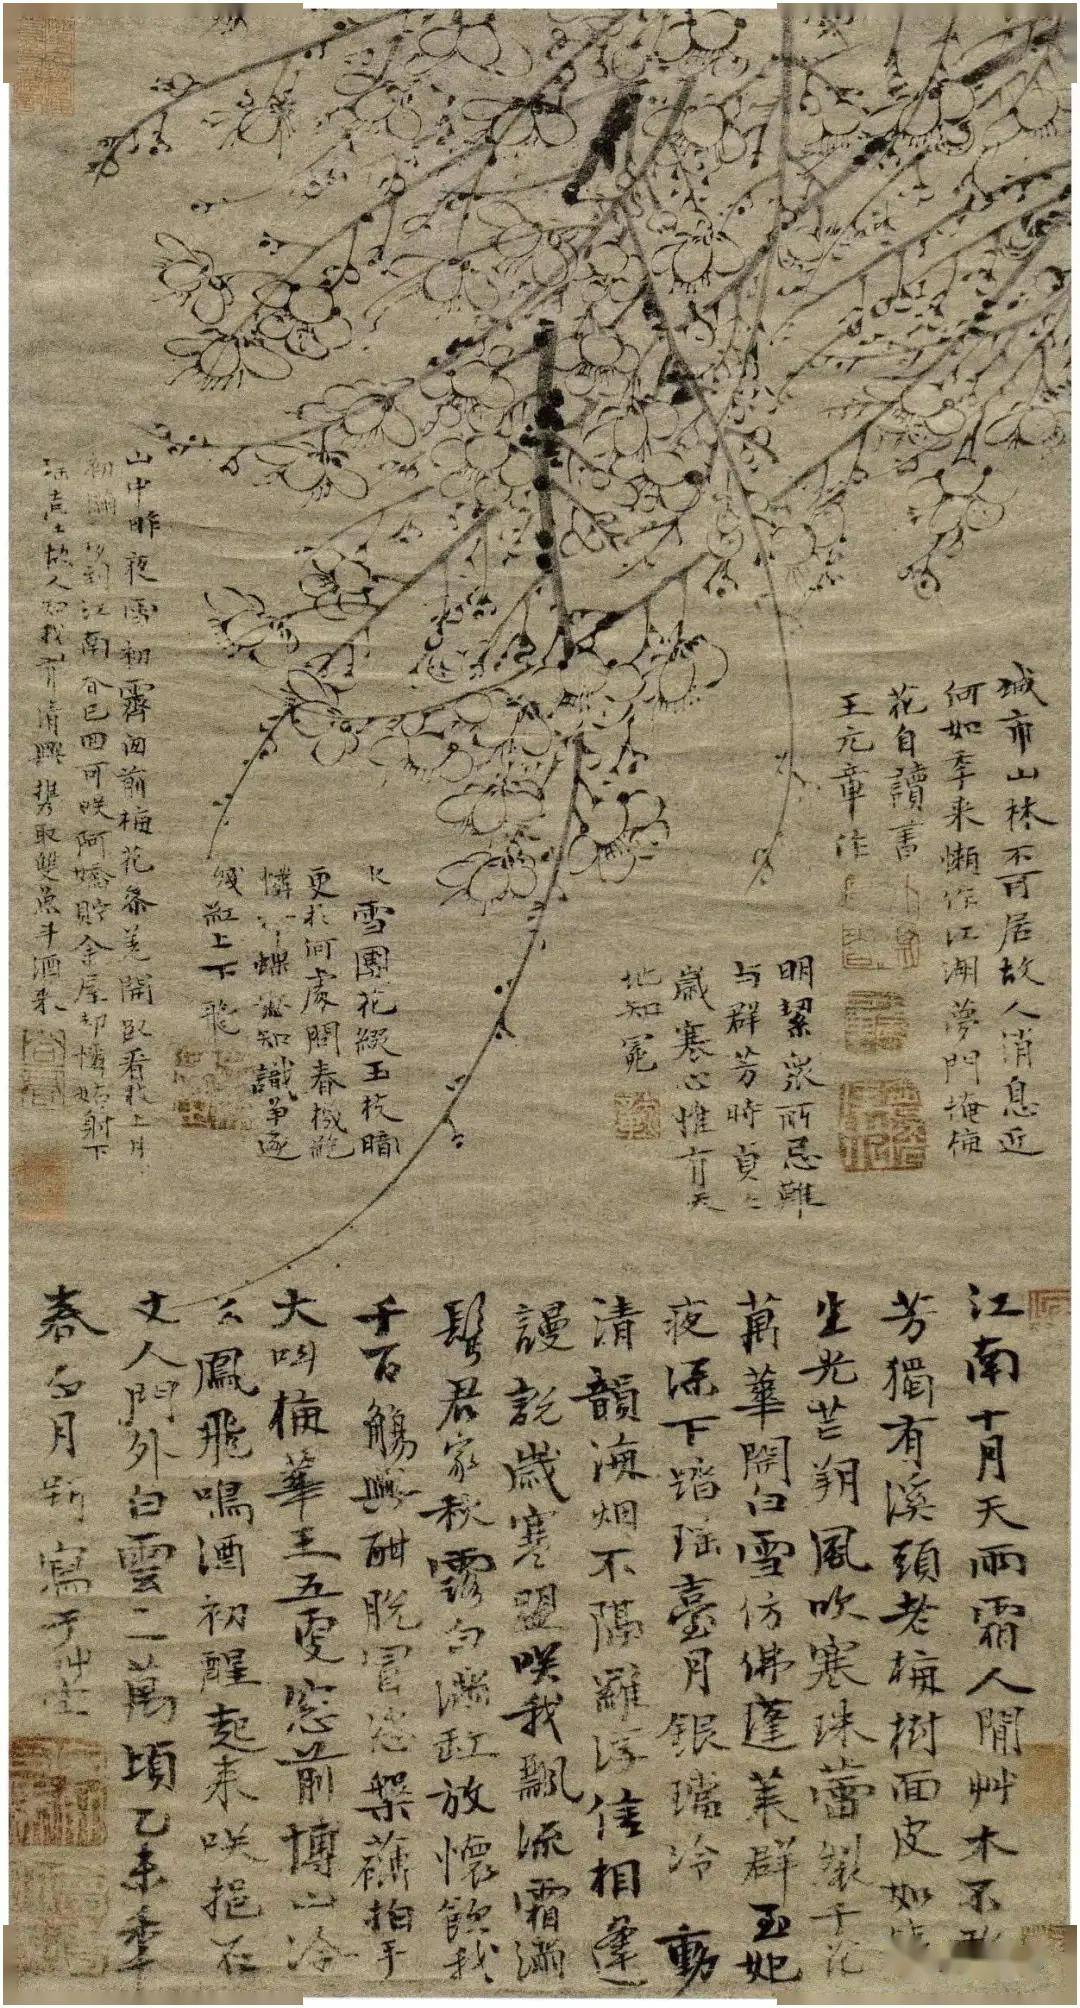 城市山林不可居故人消息近
何如季来懶作江湖夢門掩梅
花自讀書
王元章作
明絜衆所忌難
与群芳時貞〻
歲寒心惟有天
地知寃
雪團花綴玉枝暗
更於何處問春機絶
憐蝶無知識爭逐
殘缸上下飛
山中昨夜雪初霽囱前梅花參差開臥看枝上月
初闌到江南春已回可咲阿嬌貯金屋却憐姑射下
瑶台故人知我有清興携取雙魚斗酒来
江南十月天雨霜人間艸木不敢
芳獨有溪頭老梅樹面皮如鐵
生光芒朔風吹寒珠蕾裂千花
萬華開白雪仿佛蓬萊群玉妃
夜深下踏瑶臺月銀璫泠動
清韻海烟不隔羅浮信相逢
謾說歲寒盟咲我飄流霜滿
鬂君家秋露白滿缸放懷飲我
千百觴興酣脫冠恣槃礴拍手
大叫梅華王五更窓前博山冷
么鳳飛鳴酒初醒起来咲挹石
丈人門外白雲二萬頃乙未季
春正月朔寫于艸堂